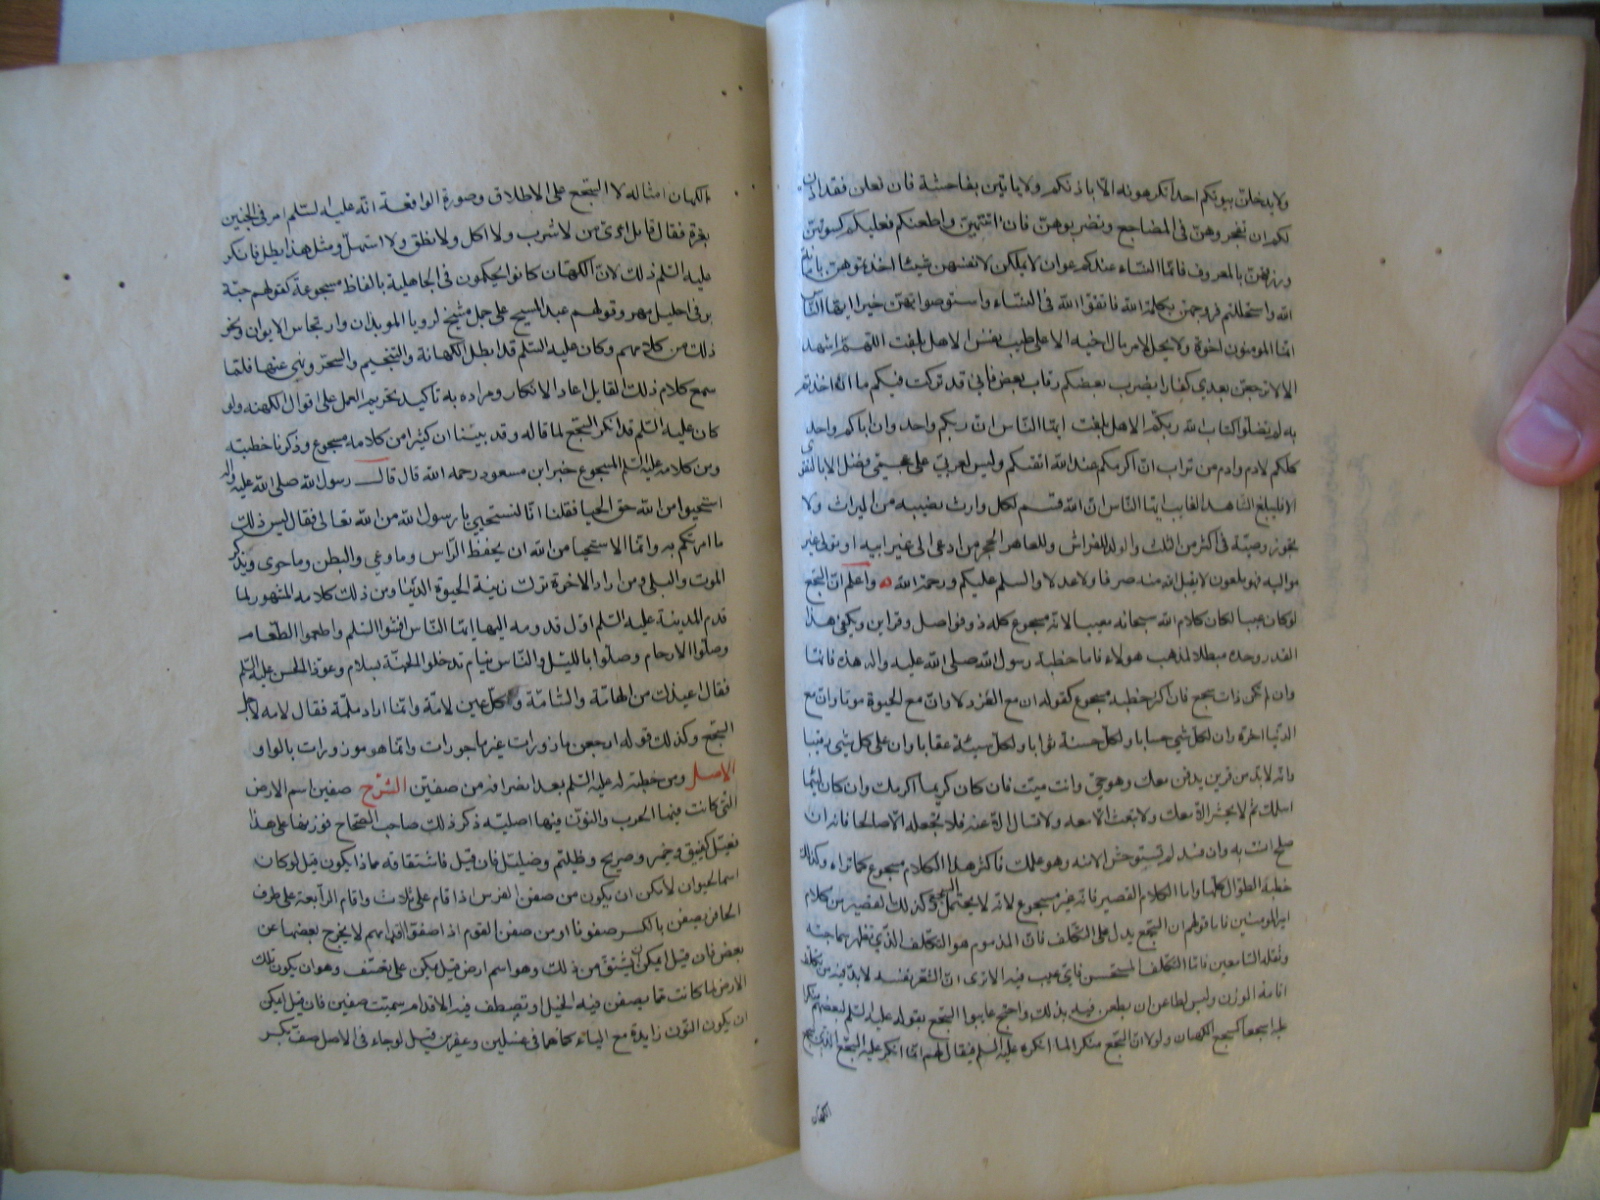 ولا يدخلن بيوتكم احدا تكرهونه الا باذنكم ولا ياتين بفاحشة فان فعلن فقد اذن
لكم ان تهجروهن فى المضاجع وتضربوهن فان انتهين واطعنكم فعليكم كسوتهن
ورزقهن بالمعروف فانما النساء عندكم عوان لا يملكن لانفسهن شيئا اخذتموهن بامانة
الله واستحللتم فروجهن بكلمة الله فاتقوا الله فى النساء واستوصوا بهن خيرا ايها الناس
انما المومنون اخوة ولا يحل لامرء مال اخيه الا على طيب نفس الا هل بلغت اللهم اشهد
الا لا ترجعن بعدى كفارا يضرب بعضكم رقاب بعض فانى قد تركت فيكم ما ان اخذتم
به لن تضلوا كتاب الله ربكم الا هل بلغت ايها الناس ان ربكم واحد وان اباكم واحد
كلكم لادم وادم من تراب ان اكرمكم عند الله اتقيكم وليس لعربى على عجمى فضل الا بالتقوى
الا فليبلغ الشاهد الغايب ايها الناس ان الله قسم لكل وارث نصيبه من الميراث ولا
يجوز وصية فى اكثر من الثلث والولد للفراش وللعاهر الحجر من ادعى الى غير ابيه او تولى غير
مواليه فهو ملعون لا يقبل الله منه صرفا ولا عدلا والسلم عليكم ورحمة الله واعلم ان السجع
لو كان عيبا لكان كلام الله سبحانه معيبا لانه مسجوع كله ذو فواصل وقراين ويكفى هذا
القدر وحده مبطلا لمذهب هولاء فاما خطبة رسول الله صلى الله عليه واله هذه فانها
وان لم تكن ذات سجع فان اكثر خطبه مسجوع كقوله ان مع العز ذلا وان مع الحيوة موتا وان مع
الدنيا اخرة وان لكل شى حسابا ولكل حسنة ثوابا ولكل سيئة عقابا وان على كل شى رقيبا
وانه لا بد من قرين يدفن معك وهو حى وانت ميت فان كان كريما اكرمك وان كان لئيما
اسلمك ثم لا يحشر الا معك ولا تبعث الا معه ولا تسال الا عنه فلا تجعله الا صالحا فانه ان
صلح انست به وان فسد لم تستوحش الا منه وهو عملك فاكثر هذا الكلام مسجوع كما تراه وكذلك
خطبه الطوال كلها واما الكلام القصير فانه غير مسجوع لانه لا يحتمل السجع وكذلك القصير من كلام
امير المومنين فاما قولهم ان السجع يدل على التكلف فان المذموم هو التكلف الذى تظهر سماجته
وثقله للسامعين فاما التكلف المستحسن فاى عيب فيه الا ترى ان الشعر نفسه لا بد فيه من تكلف
اقامة الوزن وليس لطاعن ان يطعن فيه بذلك واحتج عايبوا السجع بقوله عليه السلم لبعضهم منكرا
عليه اسجعا كسجع الكهان ولولا ان السجع منكر لما انكره عليه السلم فيقال لهم انما انكر عليه السجع الذى يسجع
الكهان
الكهان امثاله لا السجع على الاطلاق وصورة الواقعة انه عليه السلم امر فى الجنين
بغرة فقال قايل اءدى من لا شرب ولا اكل ولا نطق ولا استهل ومثل هذا يطل فانكر
عليه السلم ذلك لان الكهان كانوا يحكمون فى الجاهلية بالفاظ مسجوعة كقولهم حبة
بر فى احليل مهر وقولهم عبد المسيح على جمل مشيح لرويا الموبذان وارتجاس الايوان ونحو
ذلك من كلامهم وكان عليه السلم قد ابطل الكهانة والتنجيم والسحر ونهى عنها فلما
سمع كلام ذلك القايل اعاد الانكار ومراده به تاكيد تحريم العمل على اقوال الكهنه ولو
كان عليه السلم قد انكر السجع لما قاله وقد بينا ان كثيرا من كلامه مسجوع وذكرنا خطبته
ومن كلامه عليه السلم المسجوع خبر ابن مسعود رحمه الله قال قال رسول الله صلى الله عليه واله
استحيوا من الله حق الحيا فقلنا انا لنستحيى يا رسول الله من الله تعالى فقال ليس ذلك
ما امرتكم به وانما الاستحيا من الله ان يحفظ الراس وما وعى والبطن وما حوى ويذكر
الموت والبلى ومن اراد الاخرة ترك زينة الحيوة الدنيا ومن ذلك كلامه المشهور لما
قدم المدينة عليه السلم اول قدومه اليها ايها الناس افشوا السلم واطعموا الطعام
وصلوا الارحام وصلوا بالليل والناس نيام تدخلوا الجنة بسلام وعوذ الحسن عليه السلم
فقال اعيذك من الهامة والسامة وكل عين لامة وانما اراد ملمة فقال لامة لاجل
السجع وكذلك قوله ارجعن مازورات غير ماجورات وانما هو موزورات بالواو
الاصل ومن خطبة له عليه السلم بعد انصرافه من صفين الشرح صفين اسم الارض
التى كانت فيها الحرب والنون فيها اصلية ذكر ذلك صاحب الصحاح فوزنها على هذا
فعيل كفسيق وخمير وصريع وظليم وضليل فان قيل فاشتقاقه مماذا يكون قيل لو كان
اسما لحيوان لامكن ان يكون من صفن الفرس اذا قام على ثلاث واقام الرابعة على طرف
الحافر يصفن بالكسر صفونا او من صفن القوم اذا صفوا اقدامهم لا يخرج بعضها عن
بعض فان قيل ايمكن ان يشتق من ذلك وهو اسم ارض قيل يمكن على تعسف وهو ان يكون تلك
الارض لما كانت مما يصفن فيه الخيل او تصطف فيه الاقدام سميت صفين فان قيل ايمكن
ان يكون النون زايدة مع الياء كما هما فى غسلين وعفرين قيل لو جاء فى الاصل صف بكسر